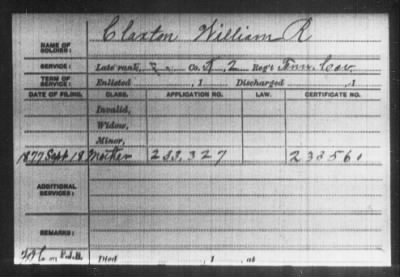 Claxton William R
NAME OF SOLDIER:
SERVICE: Late rank, Co. 2 Reg't Tenn. Cav.
TERM OF SERVICE: Enlisted , 1 Discharged , 1
DATE OF FILING. CLASS. APPLICATION NO. LAW. CERTIFICATE NO.
Invalid,
Widow,
Minor,
1877 Sept 18 Mother 233,327 233561
ADDITIONAL SERVICES:
REMARKS:
Died , 1 , at